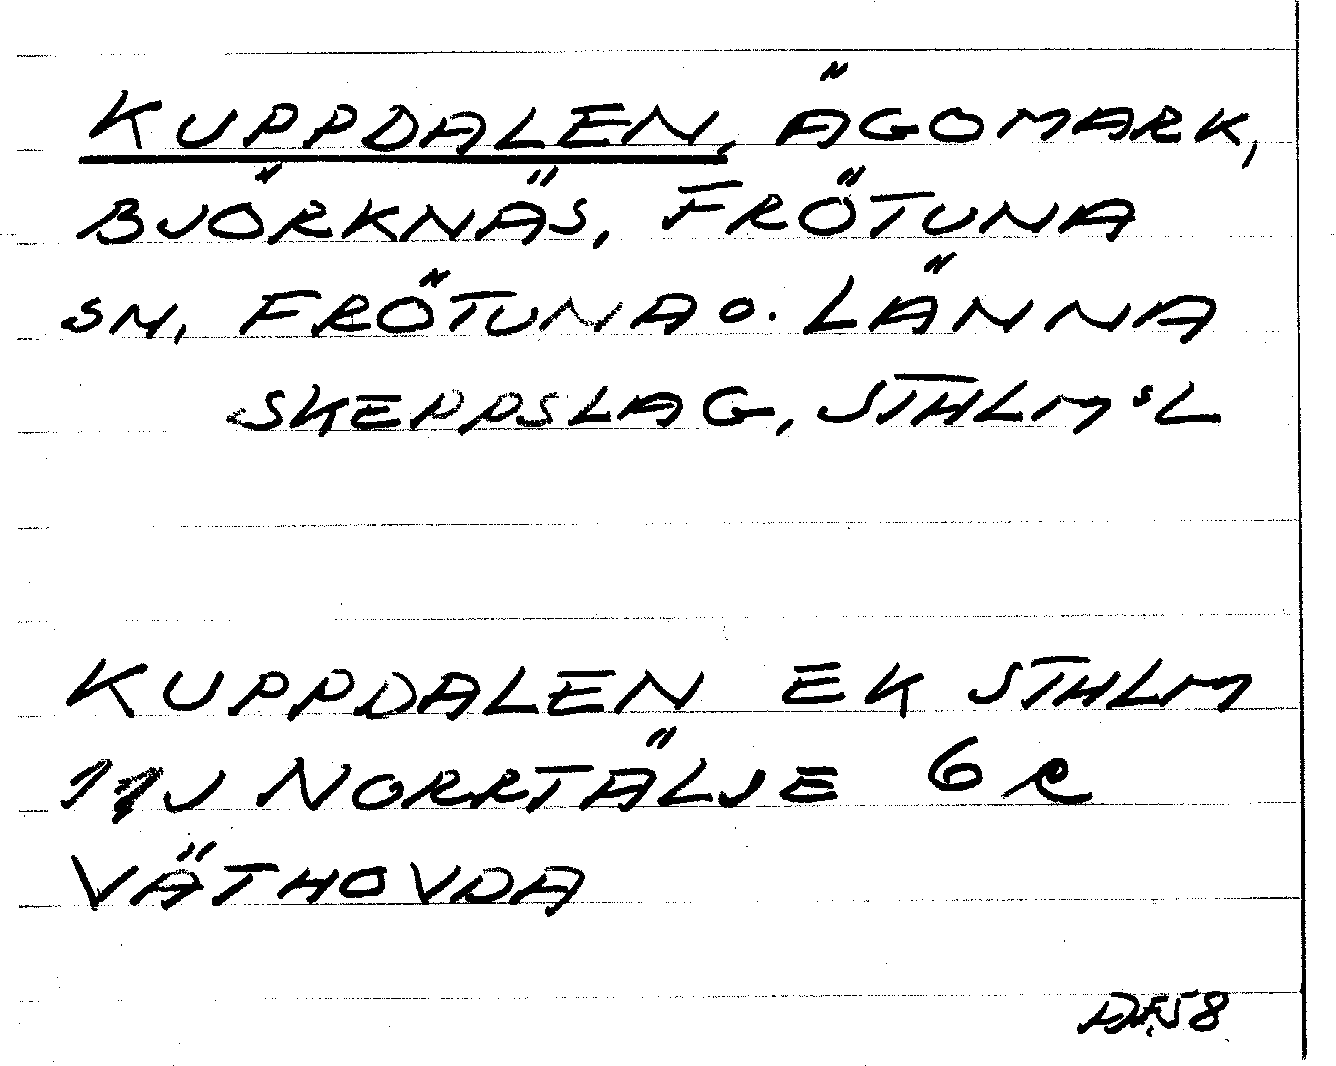 KUPPDALEN, ÄGOMARK,
BJÖRKNÄS, FRÖTUNA
SN, FRÖTUNA O. LÄNNA
SKEPPSLAG, STHLMSL
KUPPDALEN EK STHLM
11J NORRTÄLJE 6 R
VÄTHOVDA